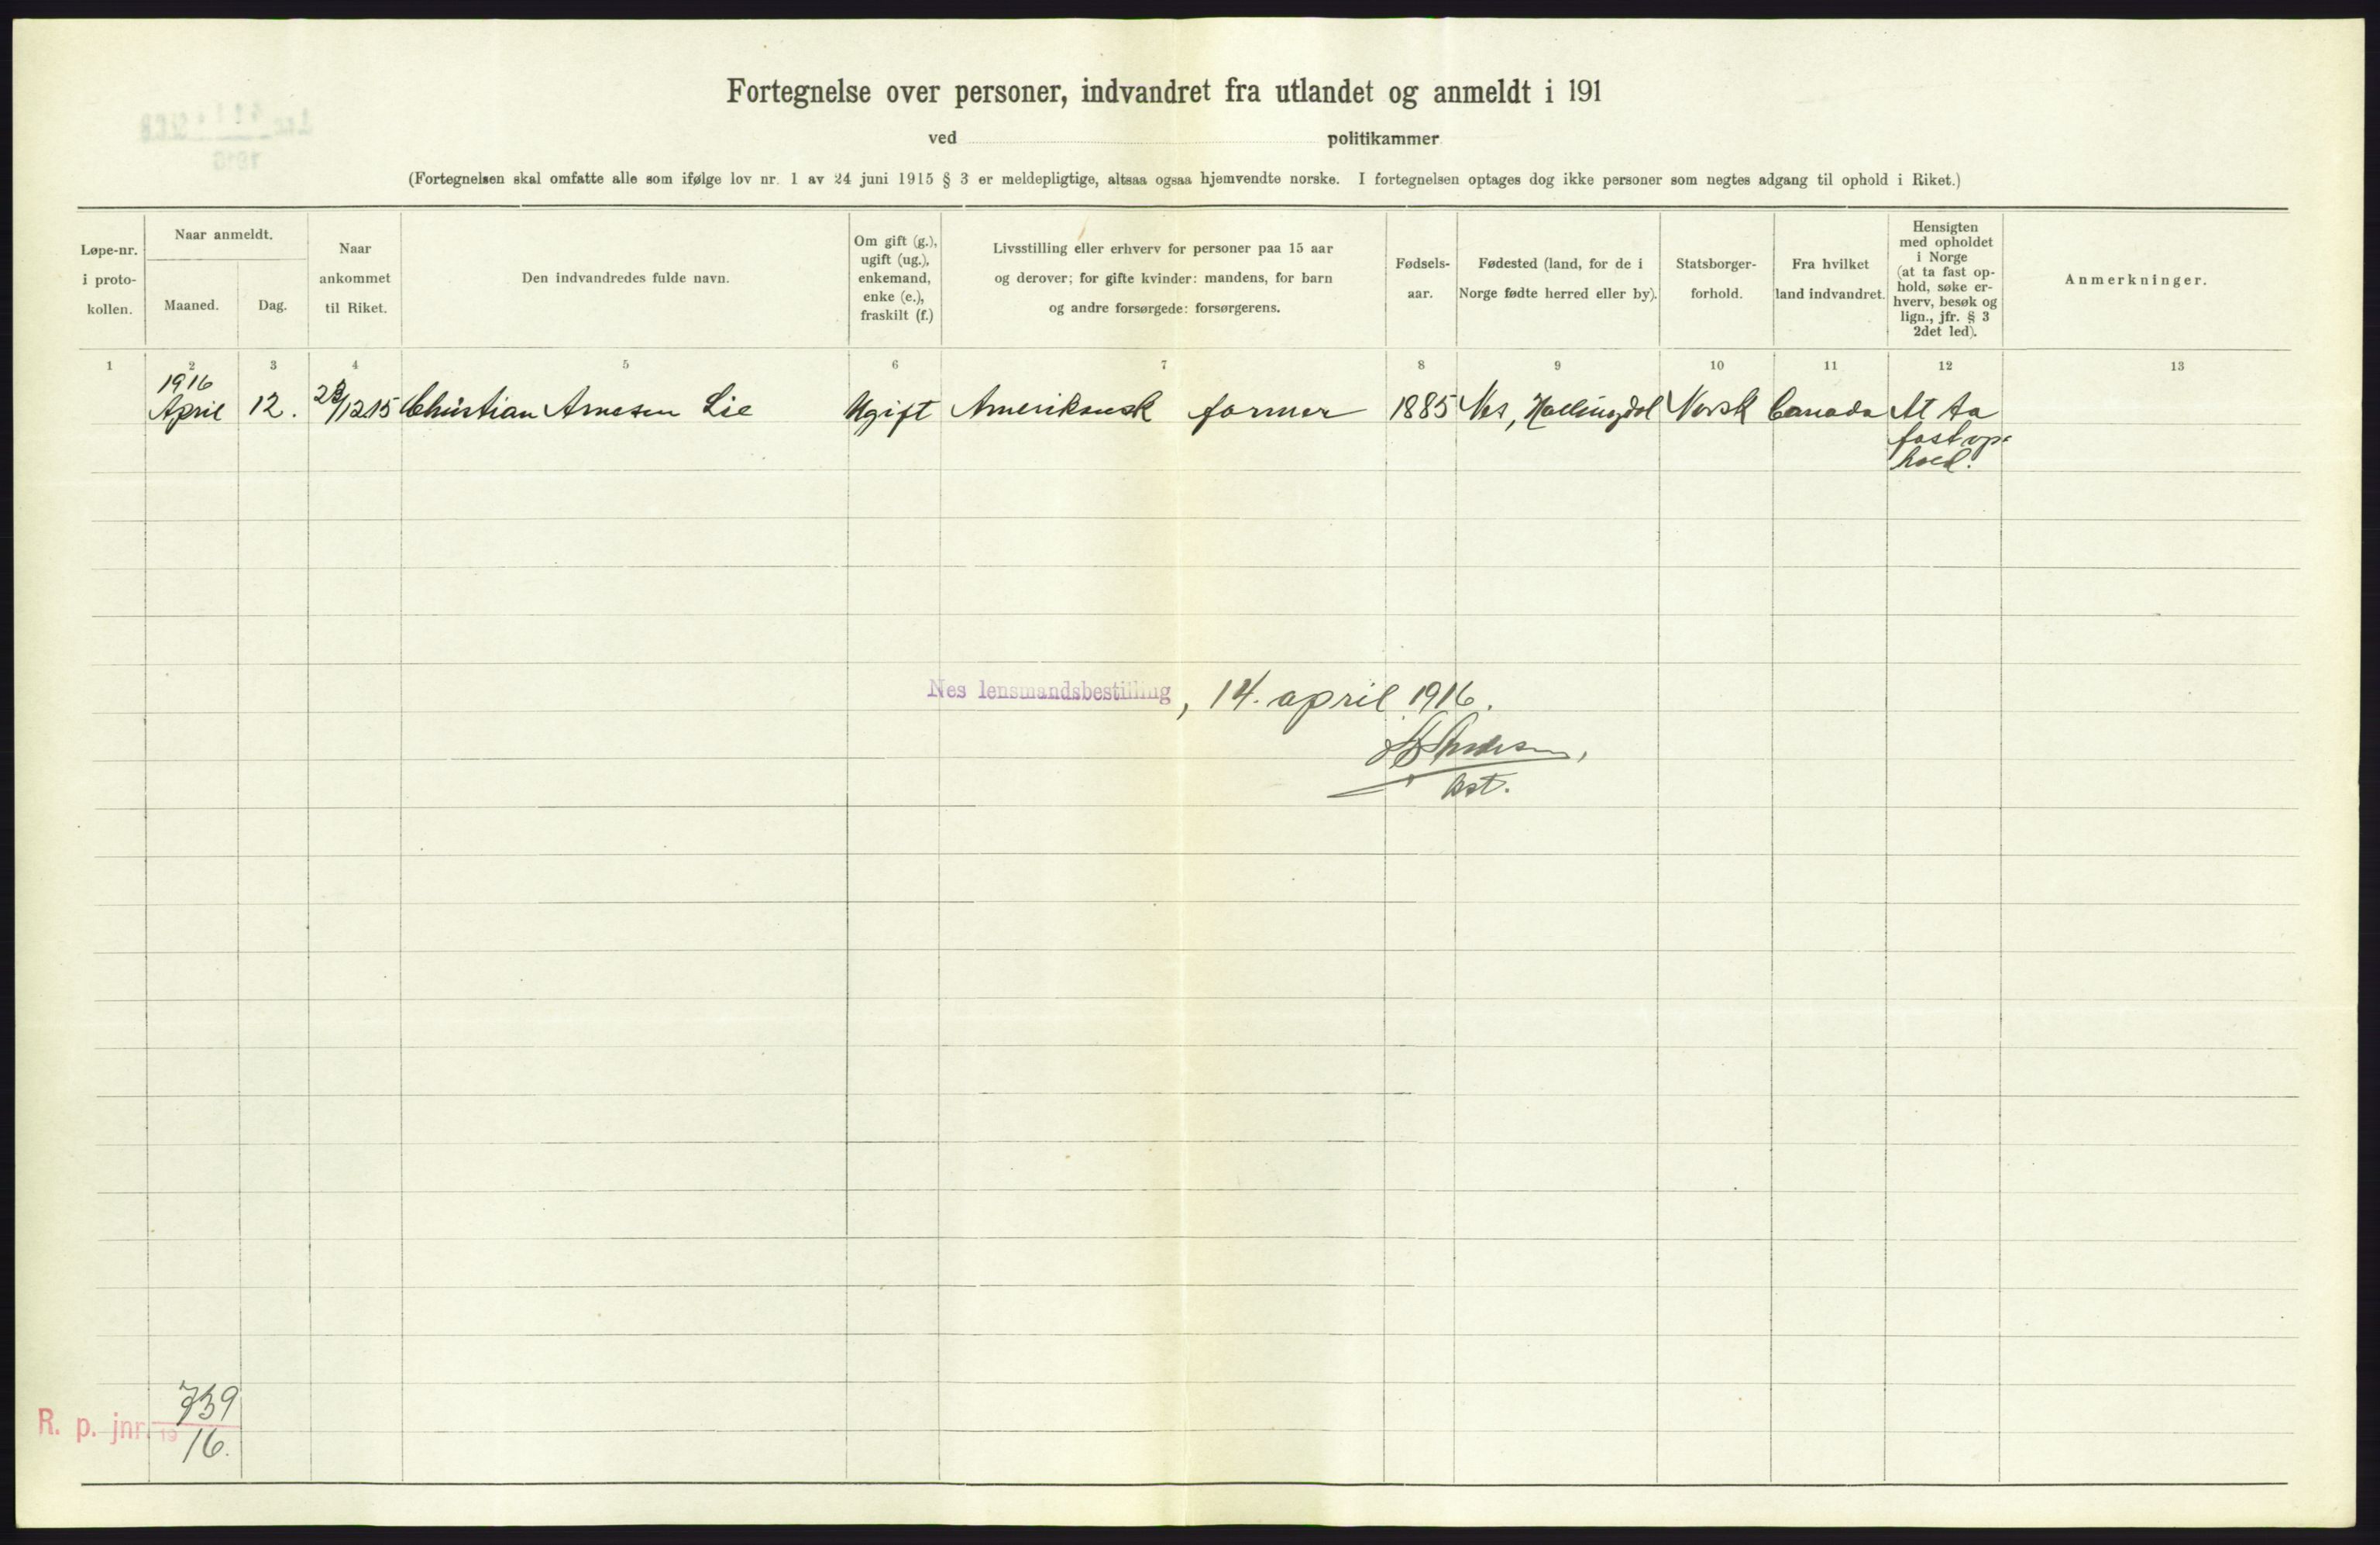 Fortegnelse over personer, indvandret fra utlandet og anmeldt i 191
ved politikammer
(Fortegnelsen skal omfatte alle som ifølge lov nr. 1 av 24 juni 1915 § 3 er meldepligtige, altsaa ogsaa hjemvendte norske. I fortegnelsen optages dog ikke personer som negtes adgang til ophold i Riket.)
Løpe-nr.
i proto-
kollen.
Naar anmeldt.
Maaned.
Dag.
Naar
ankommet
til Riket.
Den indvandredes fulde navn.
Om gift (g.),
ugift (ug.),
enkemand,
enke (e.),
fraskilt (f.)
Livsstilling eller erhverv for personer paa 15 aar
og derover; for gifte kvinder: mandens, for barn
og andre forsørgede: forsørgerens.
Fødsels-
aar.
Fødested (land, for de i
Norge fødte herred eller by).
Statsborger-
forhold.
Fra hvilket
land indvandret.
Hensigten
med opholdet
i Norge
(at ta fast op-
hold, søke er-
hverv, besøk og
lign., jfr. § 3
2det led).
Anmerkninger.
1 2 3 4 5 6 7 8 9 10 11 12 13
1916
April 12. /12 15 Christian Arnesen Lie Ugift Amerikansk farmer 1885 Nes, Hallingdal Norsk Canada At ta
fast op-
hold.
Nes lensmandsbestilling, 14. april 1916.
R. p. jnr. 739
19 16.